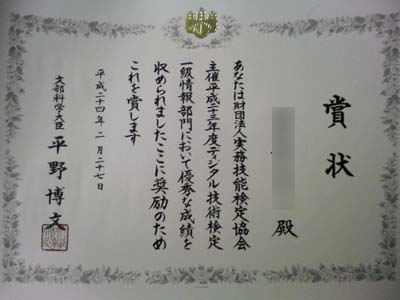 賞状
殿
あなたは財団法人実務技能検定協会
主催平成二十三年度ディジタル技術検定
一級情報部門において優秀な成績を
収められましたここに奨励のため
これを賞します
平成二十四年二月二十七日
文部科学大臣 平野博文